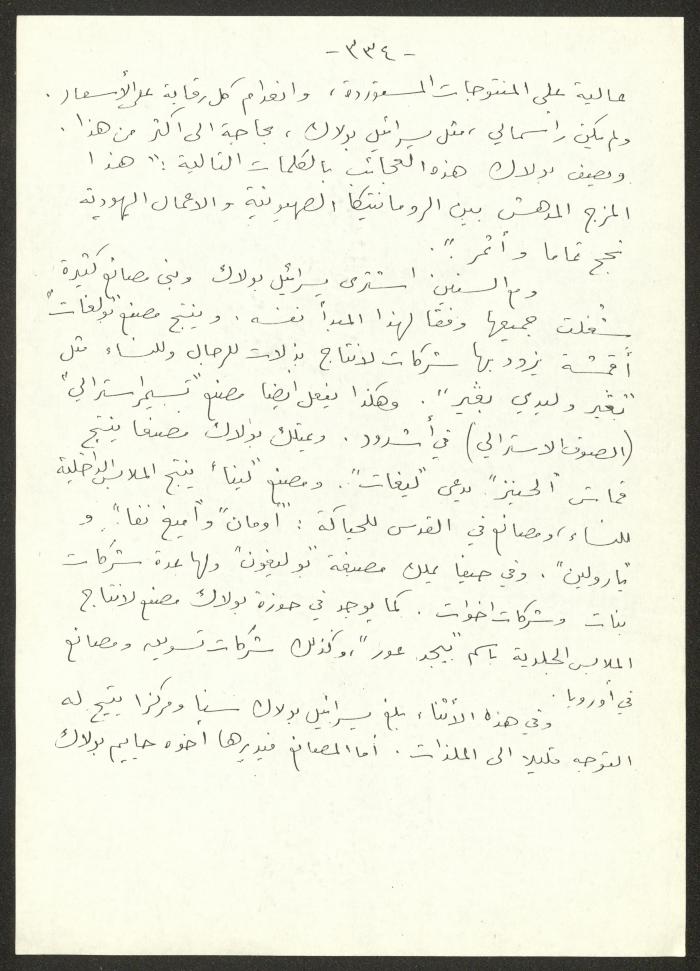 - ٣٣٤ -
عالية على المنتوجات المستوردة، وانعدام كل رقابة على الأسعار.
ولم يكن رأسمالي، مثل يسرائيل بولاك، بحاجة الى اكثر من هذا.
ويصف بولاك هذه العجائب بالكلمات التالية: "هذا
المزج المدهش بين الرومانتيكا الصهيونية والاعمال اليهودية
نجح تماما وأثمر".
ومع السنين اشترى يسرائيل بولاك وبنى مصانع كثيرة
شُغلت جميعها وفقا لهذا المبدأ نفسه. وينتج مصنع "بولغات"
أقمشة يزود بها شركات لانتاج بذلات للرجال وللنساء مثل
"بغير وليدي بغير". وهكذا يفعل ايضا مصنع "تسيمر استرالي"
(الصوف الاسترالي) في أشدود. ويمتلك بولاك مصنعا ينتج
قماش "الجينز" يدعى "ليغات". ومصنع "لينا" ينتج الملابس الداخلية
للنساء، ومصانع في القدس للحياكة: "أومان" و"أميغ نفا" و
"بارولين". وفي حيفا يملك مصبغة "بوليغون" ولها عدة شركات
بنات وشركات اخوات. كما يوجد في حوزة بولاك مصنع لانتاج
الملابس الجلدية باسم "بيجد عور"، وكذلك شركات تسويق ومصانع
في أوروبا.
وفي هذه الأثناء بلغ يسرائيل بولاك سنا ومركزا يتيح له
التوجه قليلا الى الملذات. أما المصانع فيديرها أخوه حاييم بولاك